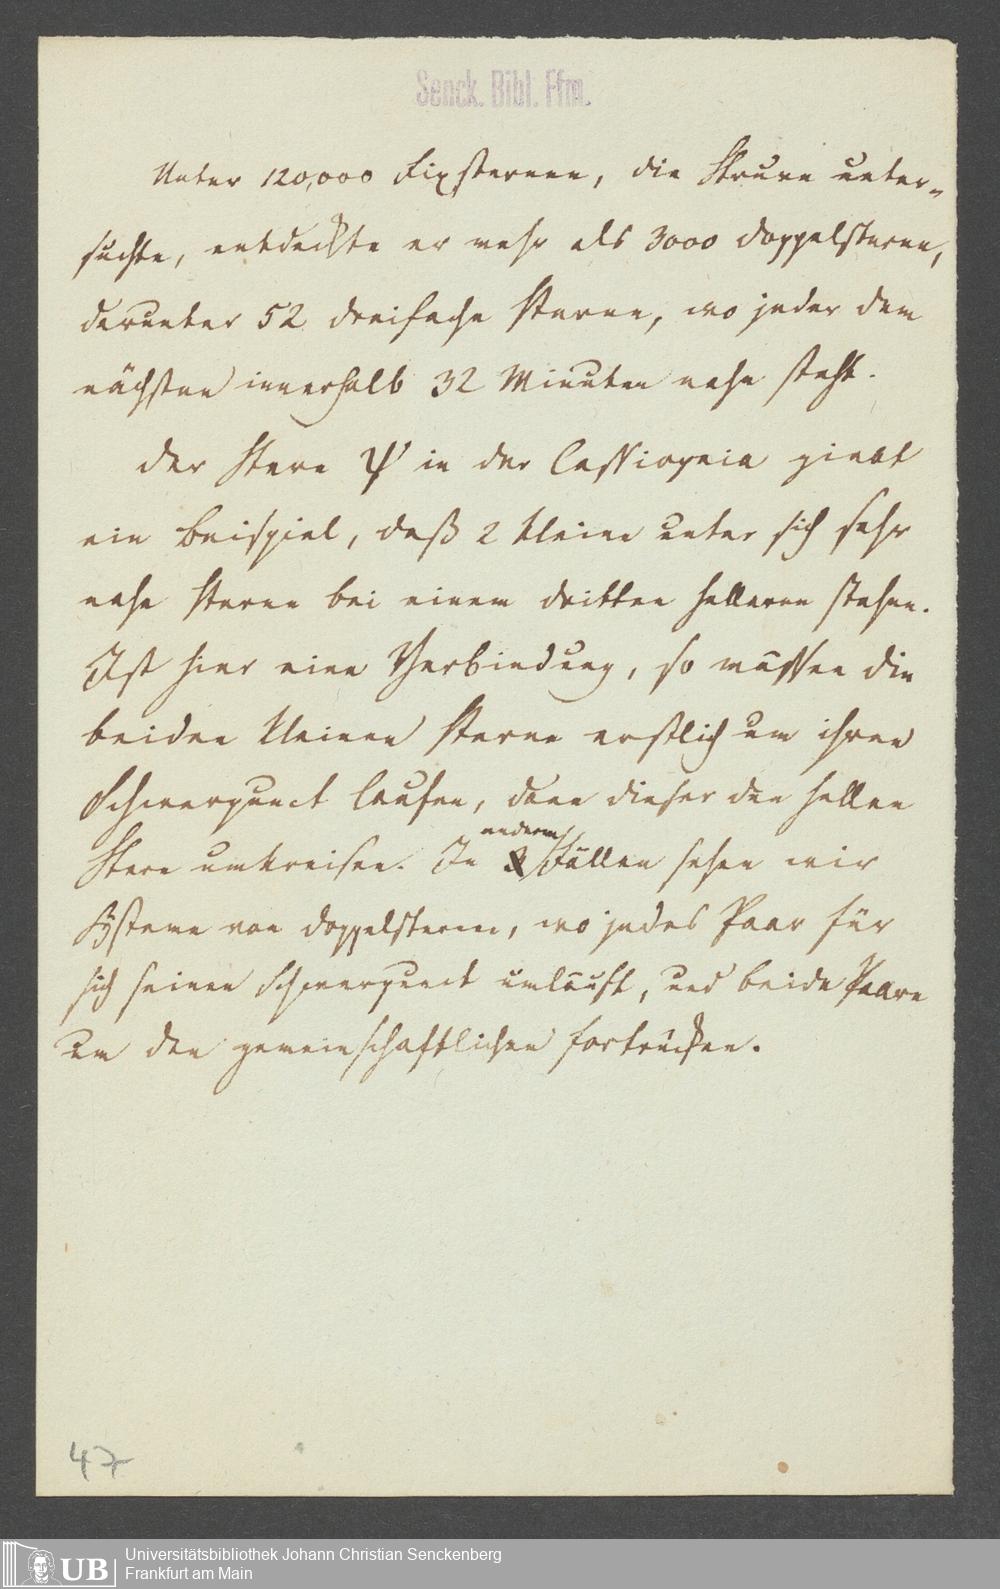 Senck. Bibl. Ffm.
Unter 120,000 Fixsternen, die Struve unter-
suchte, entdeckte er mehr als 3000 Doppelsterne,
darunter 52 dreifache Sterne, wo jeder dem
nächsten innerhalb 32 Minuten nahe steht.
Der Stern ψ in der Cassiopeia giebt
ein Beispiel, daß 2 kleine unter sich sehr
nahe Sterne bei einem dritten helleren stehen.
Ist hier eine Verbindung, so müssen die
beiden kleinen Sterne erstlich um ihren
Schwerpunct laufen, dann dieser den hellen
Stern umkreisen. In andern Fällen sehen wir
Systeme von Doppelsternen, wo jedes Paar für
sich seinen Schwerpunct umläuft, und beide Paare
um den gemeinschaftlichen fortrücken.
47
UB
Universitätsbibliothek Johann Christian Senckenberg
Frankfurt am Main